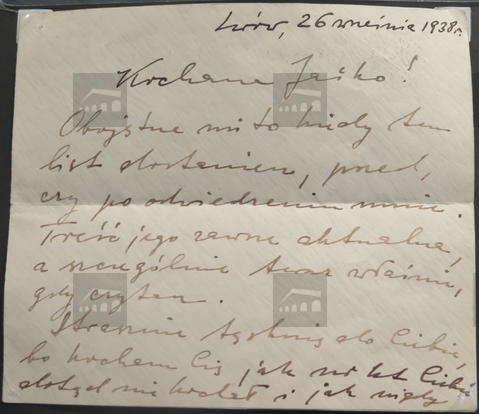 Lwów, 26 września 1938 r.
Kochana Jaśko!
Obojętne mi to kiedy ten
list dostaniesz, przed,
czy po odwiedzeniu mnie.
Treść jego zawsze aktualna,
a szczególnie teraz właśnie,
gdy czytasz.
Strasznie tęsknię do Ciebie,
bo kocham Cię, jak nikt Ciebie
dotąd nie kochał i jak nigdy